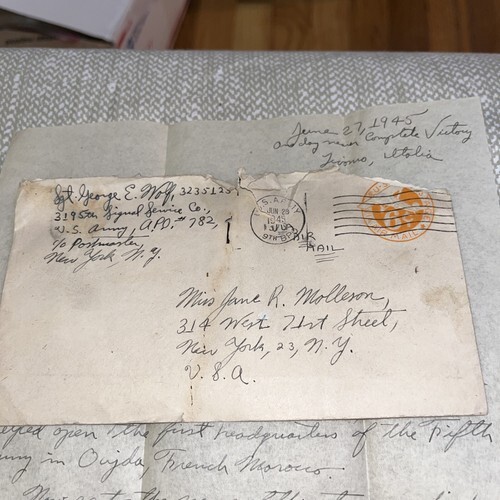 June 27, 1945
One day nearer Complete Victory
Livorno, Italia
Sgt. George E. Wolf, 3235125
3195th Signal Service Co.,
U.S. Army, A.P.O. # 782,
c/o Postmaster,
New York, N.Y.
U.S. ARMY
JUN 28
1945
AIR
MAIL
Miss Jane R. Molleson,
314 West 71st Street,
New York, 23, N.Y.
U.S.A.
open the first headquarters of the Fifth
in Oujda, French Morocco.